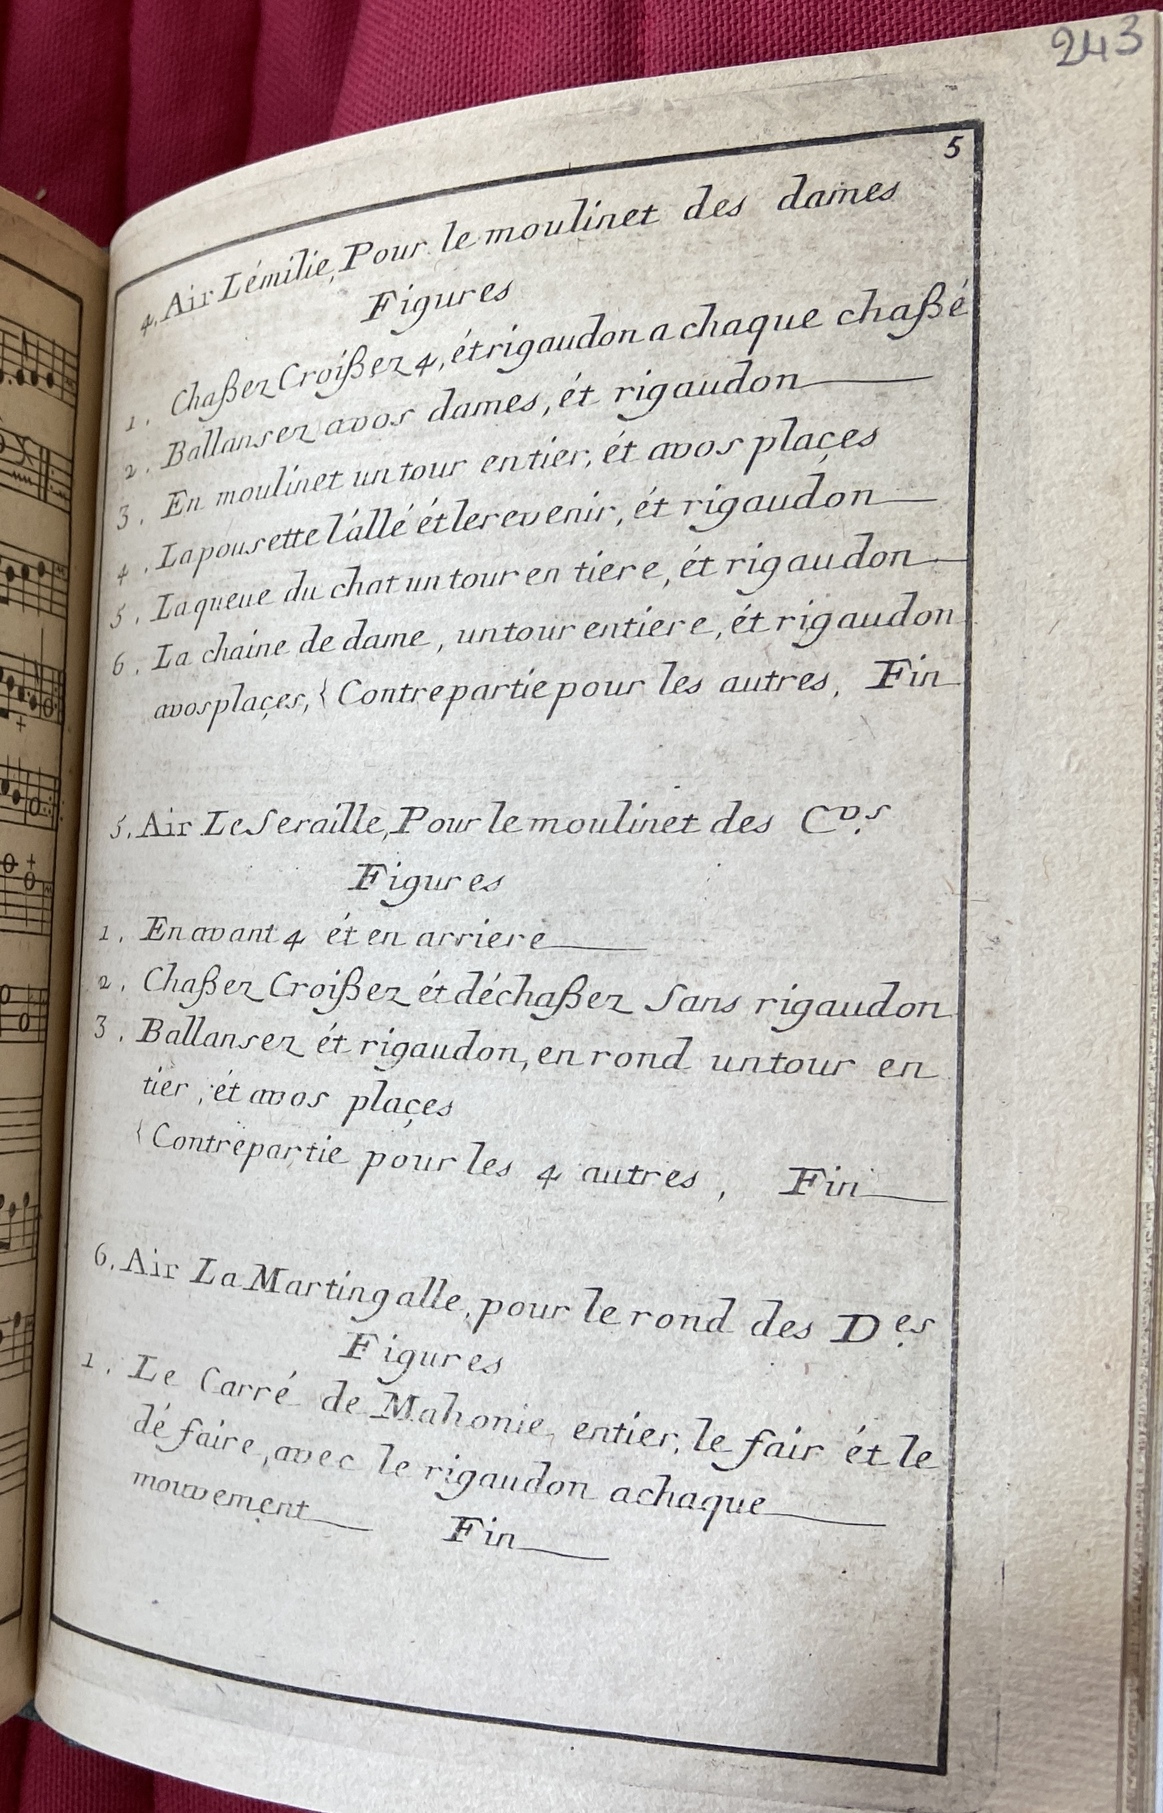 243
5
4. Air Lémilie, Pour le moulinet des dames
Figures
1. Chaßez Croißez 4, ét rigaudon a chaque chaßé
2. Ballansez avos dames, ét rigaudon
3. En moulinet un tour entier, ét avos plaçes
4. La pousette l'állé ét le revenir, ét rigaudon
5. La queue du chat un tour en tiere, ét rigaudon
6. La chaine de dame, un tour entiere, ét rigaudon
avos plaçes, { Contrepartie pour les autres, Fin
5. Air Le Seraille, Pour le moulinet des C.vs
Figures
1. En avant 4 ét en arriere
2. Chaßez Croißez ét déchaßez Sans rigaudon
3. Ballansez ét rigaudon, en rond un tour en
tier, ét avos plaçes
{ Contrepartie pour les 4 autres, Fin
6. Air La Martingalle, pour le rond des D.es
Figures
1. Le Carré de Mahonie, entier, le fair ét le
dé faire, avec le rigaudon a chaque
mouvement Fin